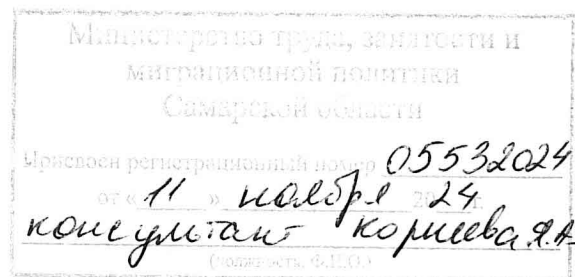 Министерство труда, занятости и
миграционной политики
Самарской области
Присвоен регистрационный номер 05532024
от « 11 » ноября 2024 г.
консультант Корнеева Я.А.
(должность, Ф.И.О.)